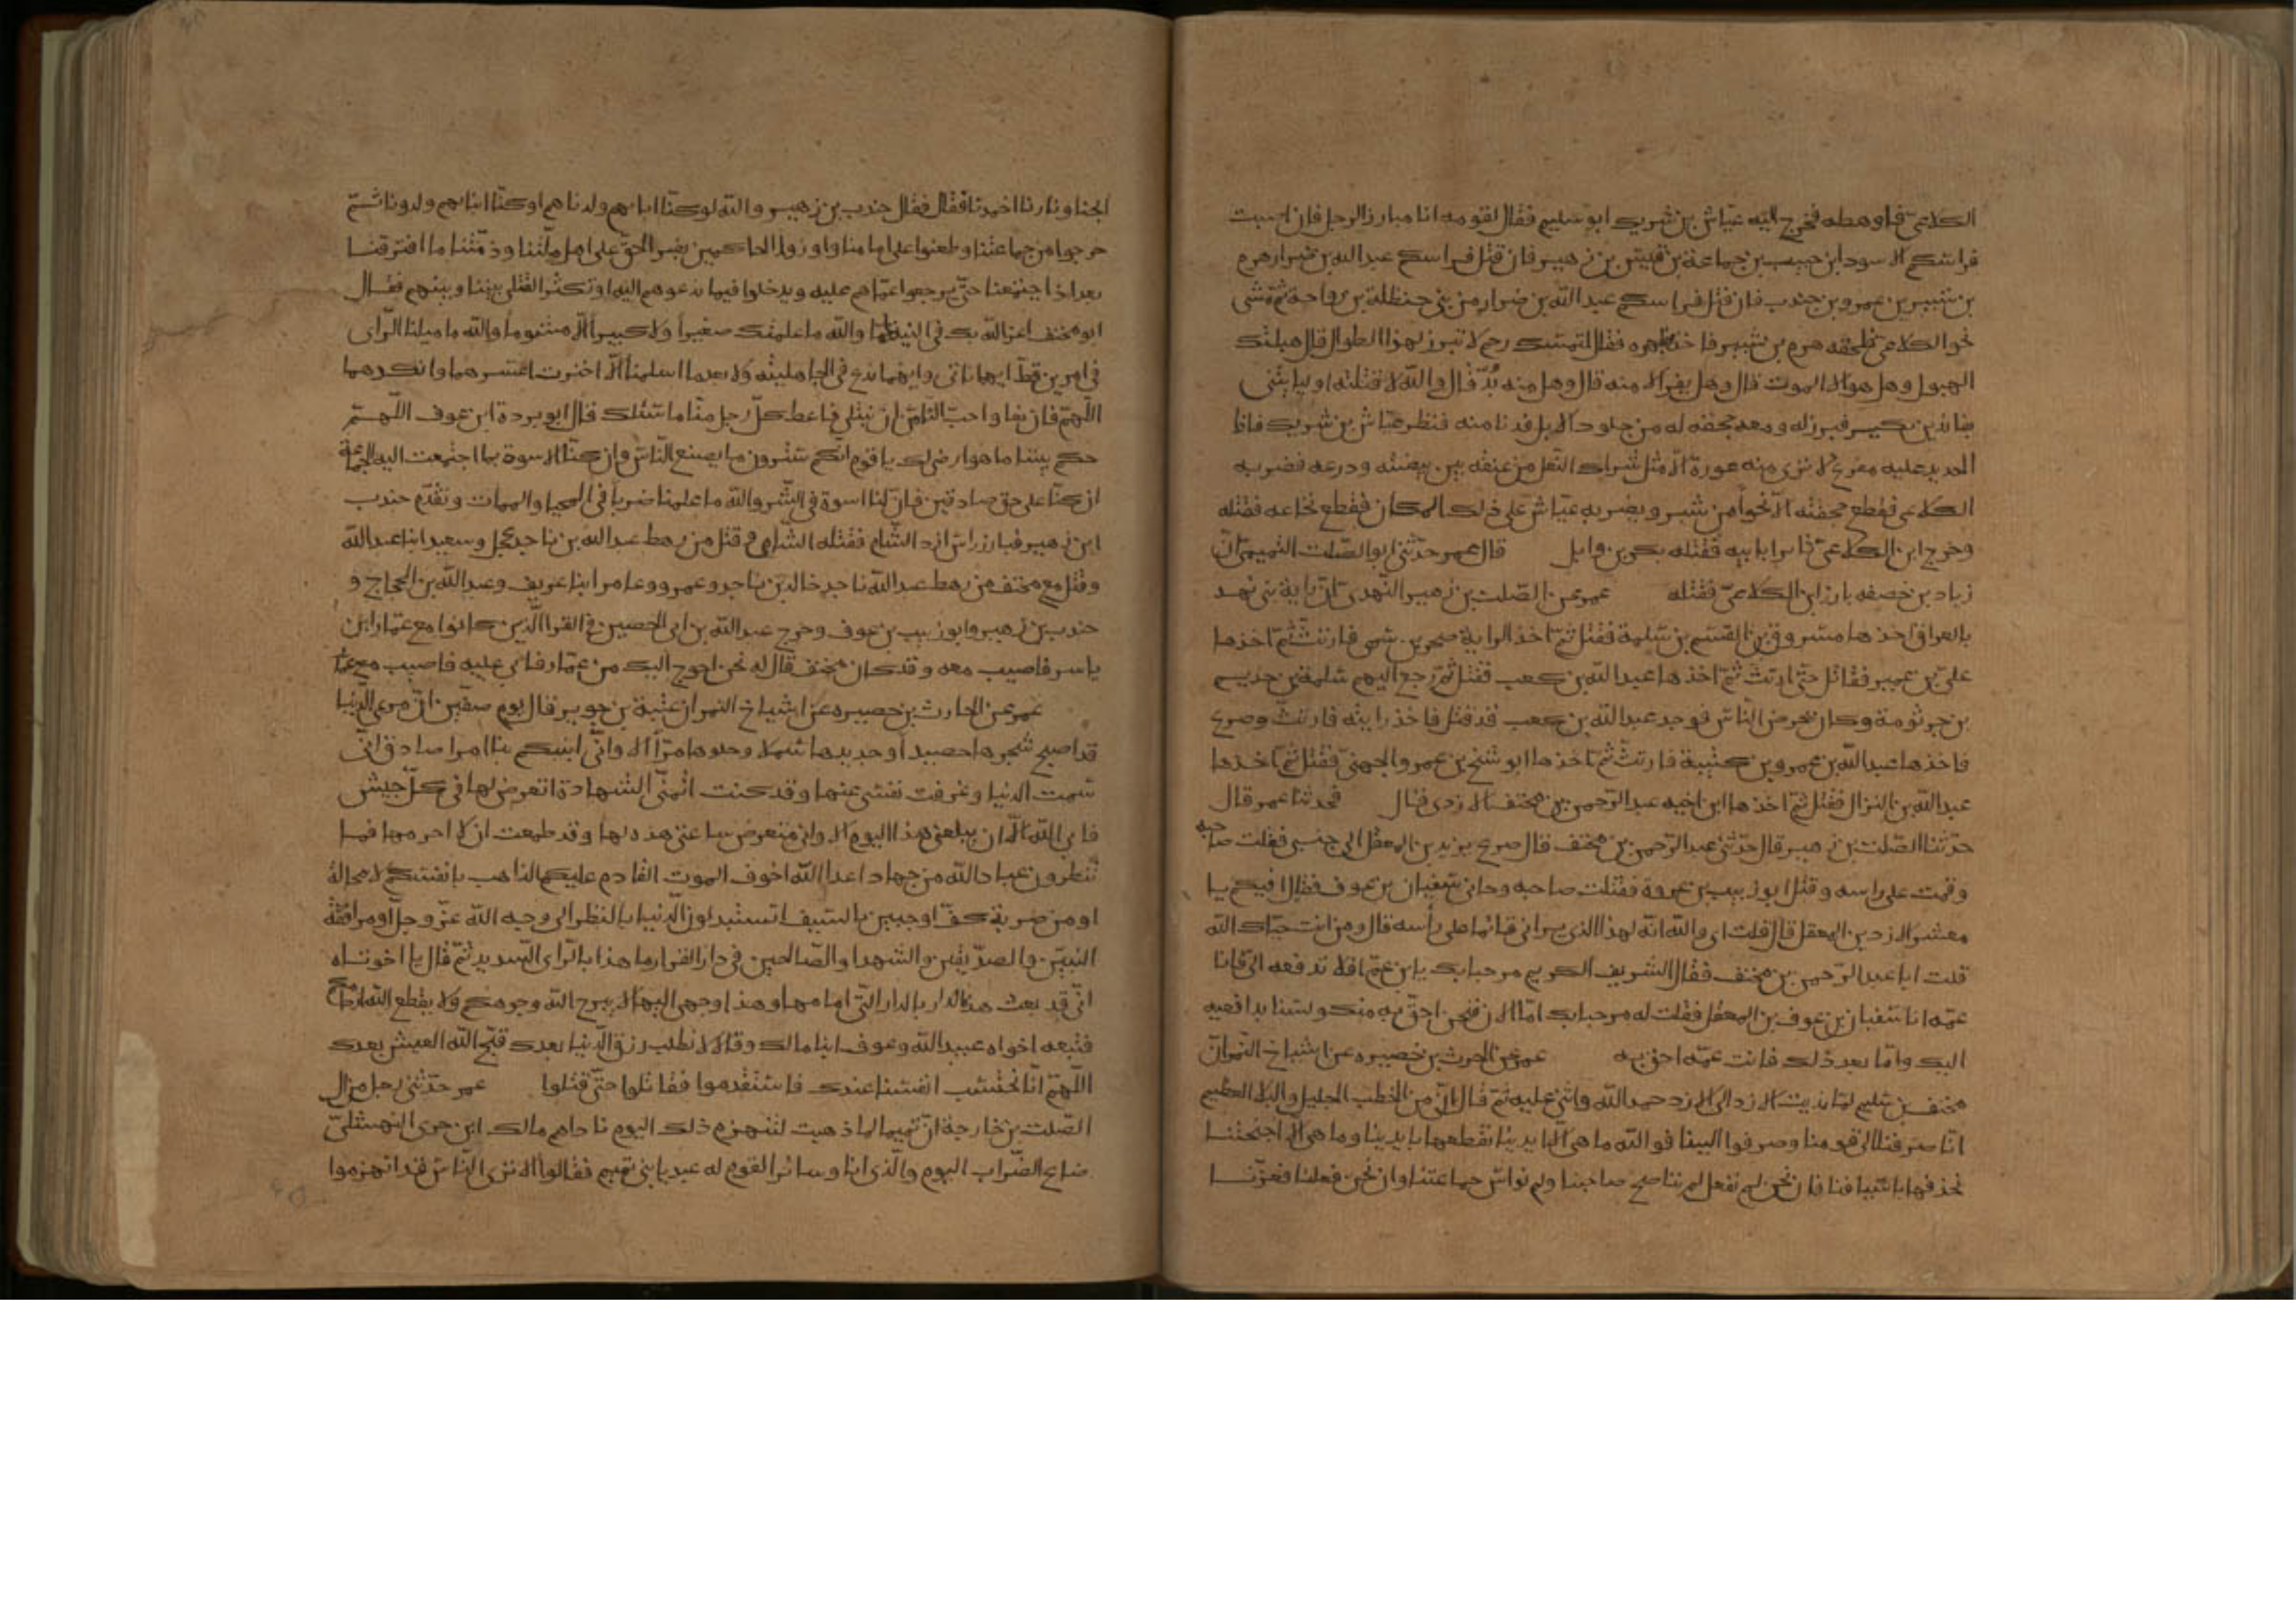 الكلاعي فاوهطه فخرج اليه عياش بن شريك ابو سليم فقال لقومه انا مبارز الرجل فان اصبت
فراسكم الاسود ابن حبيب بن جماعة بن قيس بن زهير فان قتل فراسكم عبد الله بن ضرار هرم
بن شتير بن عمرو بن جندب فان قتل فراسكم عبد الله بن ضرار من بني حنظلة بن رواحة ثم مشى
نحو الكلاعي فلحقه هرم بن شتير فاخذ بظهره فقال لتمسك رحم لا تبرز لهذا الطوال قال هبلتك
الهبول وهل هو الا الموت قال وهل يفر الا منه قال وهل منه بد قال والله لاقتلنه او ليا
بن بكير فبرز له ومعه حجفه له من جلود الابل فدنا منه فنظر عياش بن شريك فاذا
الحديد عليه مفرغ لا نرى منه عورة الا مثل شراك النعل من عنقه بين بيضته ودرعه فضربه
الكلاعي فقطع حجفته الا نحوا من شبر ويضربه عياش على ذلك المكان فقطع نخاعه فقتله
وخرج ابن الكلاعي ثائرا بابيه فقتله بكير بن وايل قال عمر حدثني ابو الصلت التيمي ان
زياد بن خصفه بارز ابن الكلاعي فقتله عمر عن الصلت بن زهير النهدي ان راية بني نهد
بالعراق اخذها مسروق بن الهيثم بن سلمة فقتل ثم اخذ الراية صخر بن سمي فارتث ثم اخذها
علي بن عمير فقاتل حتى ارتث ثم اخذها عبد الله بن كعب فقتل ثم رجع اليهم سلمة بن خذيم
بن جرثومة وكان يحرض الناس فوجد عبد الله بن كعب قد قتل فاخذ رايته فارتث وصرع
فاخذها عبد الله بن عمرو بن كبيبة فارتث ثم اخذها ابو شيخ بن عمرو الجهني فقتل ثم اخذها
عبد الله بن النزال فقتل ثم اخذها ابن اخيه عبد الرحمن بن مخنف الازدي فقال فحدثنا عمر قال
حدثنا الصلت بن زهير قال حدثني عبد الرحمن بن مخنف قال صرع يزيد بن المعقل الى جنبي فقلت صاحبه
وقمت على راسه وقتل ابو زبيب بن عروة فقتلت صاحبه وجاني سفيان بن عوف فقال افيكم يا
معشر الازد يزيد بن المعقل قال قلت اي والله انه لهذا الذي تراني قائما على رأسه قال ومن انت حياك الله
قلت انا عبد الرحمن بن مخنف فقال الشريف الكريم مرحبا بك يا ابن عم افلا تدفعه الي فانا
عمه انا سفيان بن عوف بن المعقل فقلت له مرحبا بك اما الان فنحن احق به منك ولسنا بدافعيه
اليك واما بعد ذلك فانت عمه احق به عمر عن الحرث بن حصيره عن اشياخ النمر ان
مخنف بن سليم لما نديت الازد الى الازد حمد الله واثنى عليه ثم قال ان من الخطب الجليل والبلا العظيم
انا صرفنا الى قومنا وصرفوا الينا فوالله ما هي الا ايدينا نقطعها بايدينا وما هي الا اجنحتنا
نحذفها باسيافنا فان نحن لم نفعل لم نناصح صاحبنا ولم نواس جماعتنا وان نحن فعلنا فعزنا
ابحنا ونارنا اخمدنا فقال جندب بن زهير والله لو كنا اباهم ولدناهم او كنا ابناهم ولدونا ثم
خرجوا من جماعتنا وطعنوا على امامنا وازروا الحاكمين بغير الحق على اهل ملتنا وذمتنا ما افترقنا
بعد اذ اجتمعنا حتى يرجعوا عما هم عليه ويدخلوا فيما ندعوهم اليه او تكثر القتلى بيننا وبينهم فقال
ابو مخنف اعز الله بك في النيه اما والله ما علمتك صغيرا ولا كبيرا الا مشئوما والله ما ميلنا الراى
في امرين قط ايهما ناتي وايهما ندع في الجاهلية ولا بعدما اسلمنا الا اخترت اعسرهما وانكدهما
اللهم فان نعافا احب الينا من ان نبتلى فاعط كل رجل منا ما سئلك فقال ابو بردة ابن عوف اللهم
احكم بيننا ما هو ارضى لك يا قوم انكم سترون ما يصنع الناس وان لنا الاسوة بما اجتمعت اليه الجماعة
ان كنا على حق صادقين فان لنا اسوة في الشر والله ما علمنا ضررا في المحيا والممات وتقدم جندب
ابن زهير فبارز راس ازد الشام فقتله الشامي وقتل من رهط عبد الله بن ناجد عجل وسعيد ابنا عبد الله
وقتل مع مخنف من رهط عبد الله ناجد خالد بن ناجد وعمرو وعامر ابنا عريف وعبد الله بن الحجاج و
جندب بن زهير وابو زبيب بن عوف وخرج عبد الله بن ابي الحصين في القرا الذين كانوا مع عمار ابن
ياسر فاصيب معه وقد كان مخنف قال له نحن احوج اليك من عمار فابى عليه فاصيب مع عمار
عمر عن الحارث بن حصيره عن اشياخ النمر ان عتبة بن جوير قال يوم صفين ان مرعى الدنيا
قد اصبح شجرها حصيدا وجديدها سملا وحلوها مرا الا واني انبيكم نبا امرا صادق اني
سئمت الدنيا وعزفت نفسي عنها وقد كنت اتمنى الشهادة اتعرض لها في كل جيش
فابى الله الا ان يبلغني هذا اليوم الا واني متعرض ساعتي هذه لها وقد طمعت ان لا احرمها فما
تنظرون عباد الله من جهاد اعدا الله اخوف الموت القادم عليكم الذاهب بانفسكم لا محالة
او من ضربة كف او جبين بالسيف اتستبدلون الدنيا بالنظر الى وجه الله عز وجل او مرافقة
النبيين والصديقين والشهدا والصالحين في دار القرار ما هذا بالراى السديد ثم قال يا اخوتاه
اني قد بعت هذه الدار بالدار التي امامها وهذا وجهي اليها لا يبرح الله وجوهكم ولا يقطع الله ارحامكم
فتبعه اخواه عبيد الله وعوف ابنا مالك وقالا لا نطلب رزق الدنيا بعدك قبح الله العيش بعدك
اللهم انا نحتسب انفسنا عندك فاستقدموا فقاتلوا حتى قتلوا عمر حدثني رجل من ال
الصلت بن خارجة ان تميما لما ذهبت لتنهزم ذلك اليوم ناداهم مالك ابن حرى النهشلي
ضاع الضراب اليوم والذي انا وسائر القوم له عبد يا بني تميم فقالوا الا ترى الناس قد انهزموا